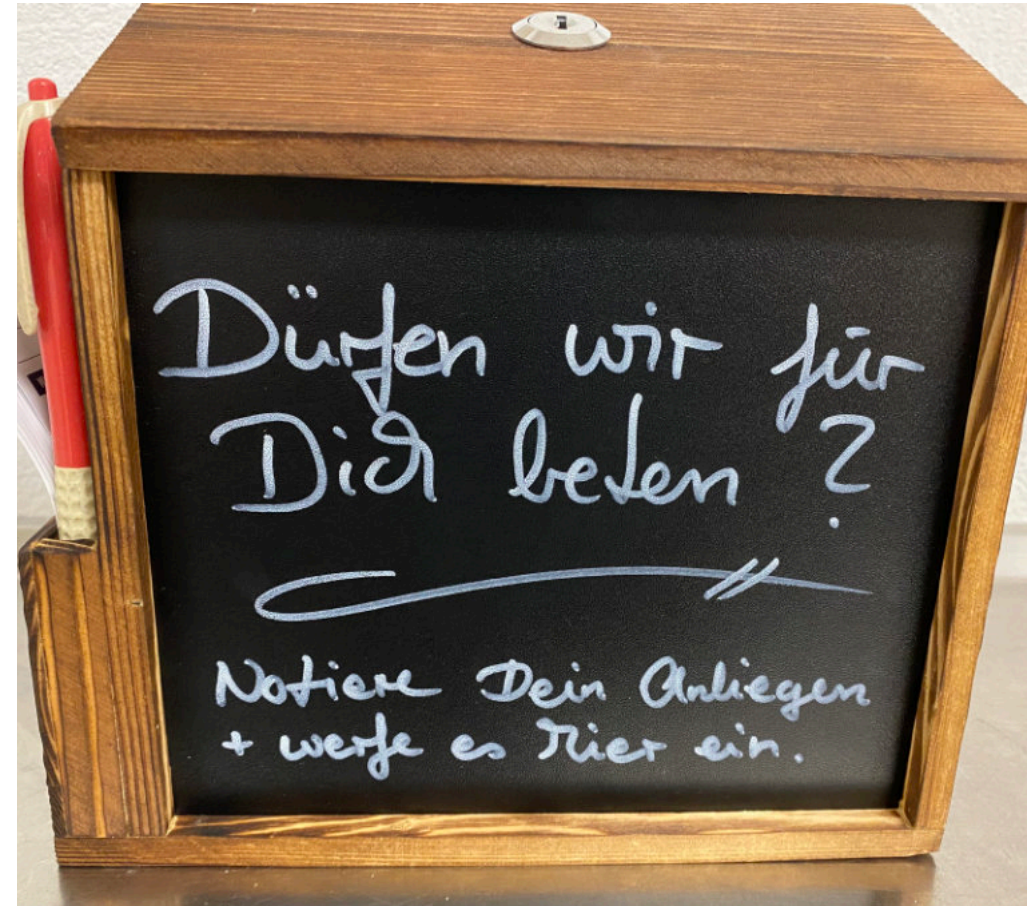 Dürfen wir für
Dich beten ?
Notiere Dein Anliegen
+ werfe es hier ein.